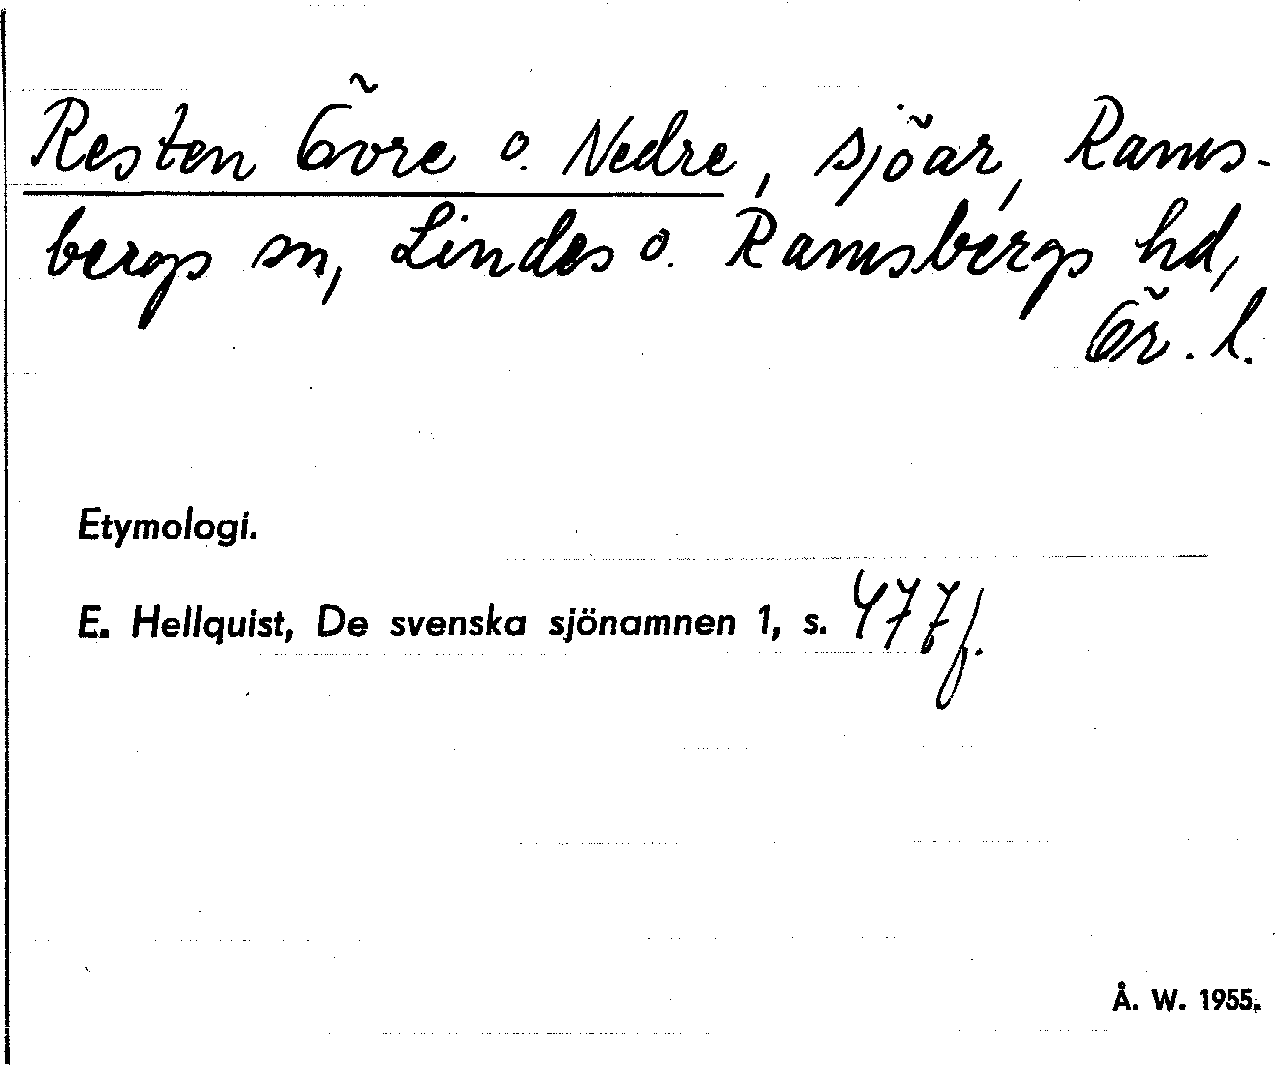 Resten Övre o. Nedre, sjöar, Rams-
bergs sn, Lindes o. Ramsbergs hd,
Ör. l.
Etymologi.
E. Hellquist, De svenska sjönamnen 1, s. 477 f.
Å. W. 1955.